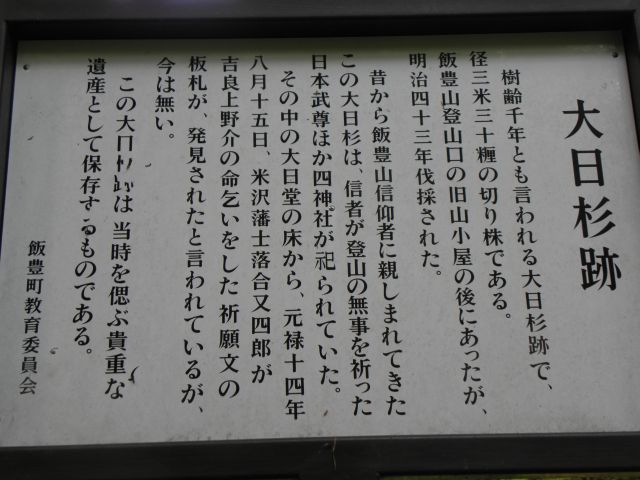 大日杉跡
樹齢千年とも言われる大日杉跡で、
径三米三十糎の切り株である。
飯豊山登山口の旧山小屋の後にあったが、
明治四十三年伐採された。
昔から飯豊山信仰者に親しまれてきた
この大日杉は、信者が登山の無事を祈った
日本武尊ほか四神社が祀られていた。
その中の大日堂の床から、元禄十四年
八月十五日、米沢藩士落合又四郎が
吉良上野介の命乞いをした祈願文の
板札が、発見されたと言われているが、
今は無い。
この大日杉跡は当時を偲ぶ貴重な
遺産として保存するものである。
飯豊町教育委員会